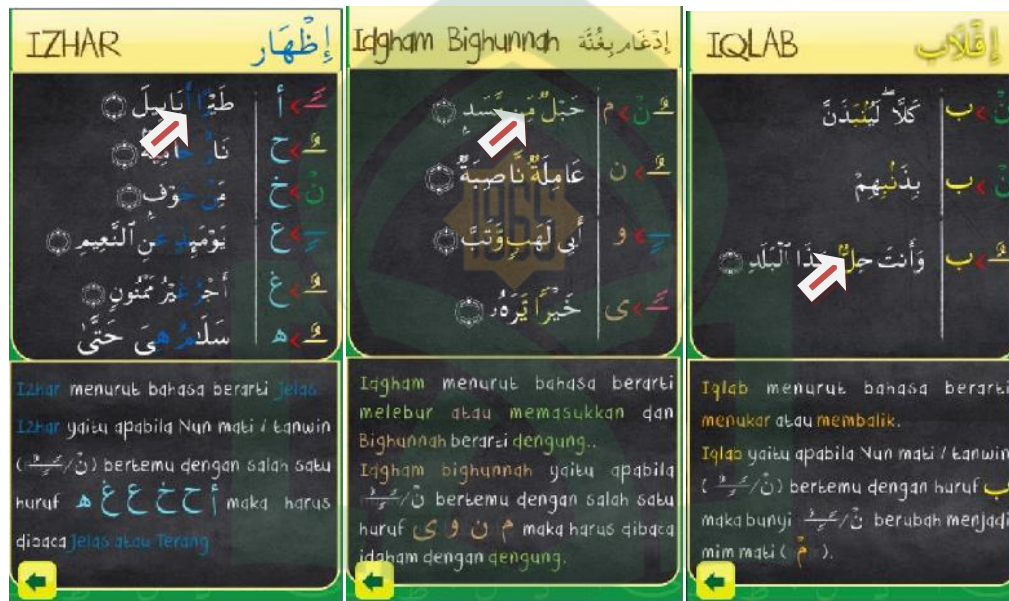 IZHAR إِظْهَار
طَيْرًا أَبَابِيلَ
أ
نَارٌ حَامِيَةٌ
ح
مِّنْ خَوْفٍ
نْ > خ
يَوْمَئِذٍ عَنِ ٱلنَّعِيمِ
ع
أَجْرٌ غَيْرُ مَمْنُونٍ
غ
سَلَٰمٌ هِىَ حَتَّىٰ
ه
Izhar menurut bahasa berarti jelas.
Izhar yaitu apabila Nun mati / tanwin
( ـًـٍـٌ / نْ ) bertemu dengan salah satu
huruf أ ح خ ع غ ه maka harus
dibaca jelas atau Terang
Idgham Bighunnah إِدْغَام بِغُنَّة
حَبْلٌ مِّن مَّسَدٍۭ
نْ > م
عَامِلَةٌ نَّاصِبَةٌ
ن
أَبِى لَهَبٍ وَتَبَّ
و
خَيْرًا يَرَهُۥ
ى
Idgham menurut bahasa berarti
melebur atau memasukkan dan
Bighunnah berarti dengung..
Idgham bighunnah yaitu apabila
ـًـٍـٌ / نْ bertemu dengan salah satu
huruf م ن و ى maka harus dibaca
idgham dengan dengung.
IQLAB إِقْلَاب
كَلَّا ۖ لَيُنۢبَذَنَّ
نْ > ب
بِذَنۢبِهِمْ
نْ > ب
وَأَنتَ حِلٌّۢ بِهَٰذَا ٱلْبَلَدِ
ب
Iqlab menurut bahasa berarti
menukar atau membalik.
Iqlab yaitu apabila Nun mati / tanwin
( ـًـٍـٌ / نْ ) bertemu dengan huruf ب
maka bunyi ـًـٍـٌ / نْ berubah menjadi
mim mati ( مْ ).